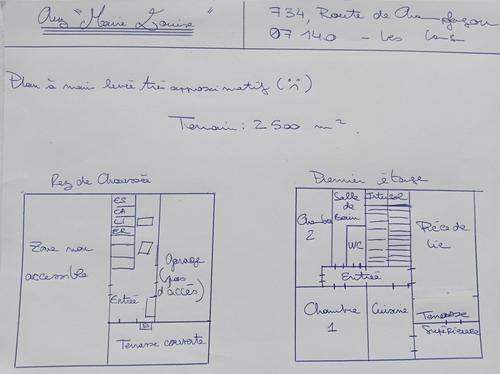 "Marie Louise"
734, Route de
07140 - Les
Plan à main levée très approximatif (:()
Terrain : 2500 m².
Rez de Chaussée
Premier étage
ES
CA
LI
ER
Zone non
accessible
Garage
(pas
d'accès)
Entrée
Terrasse couverte
Chambre
2
Salle
de
Bain
WC
Pièce de
vie
Entrée
Chambre
1
Cuisine
Terrasse
Supérieure